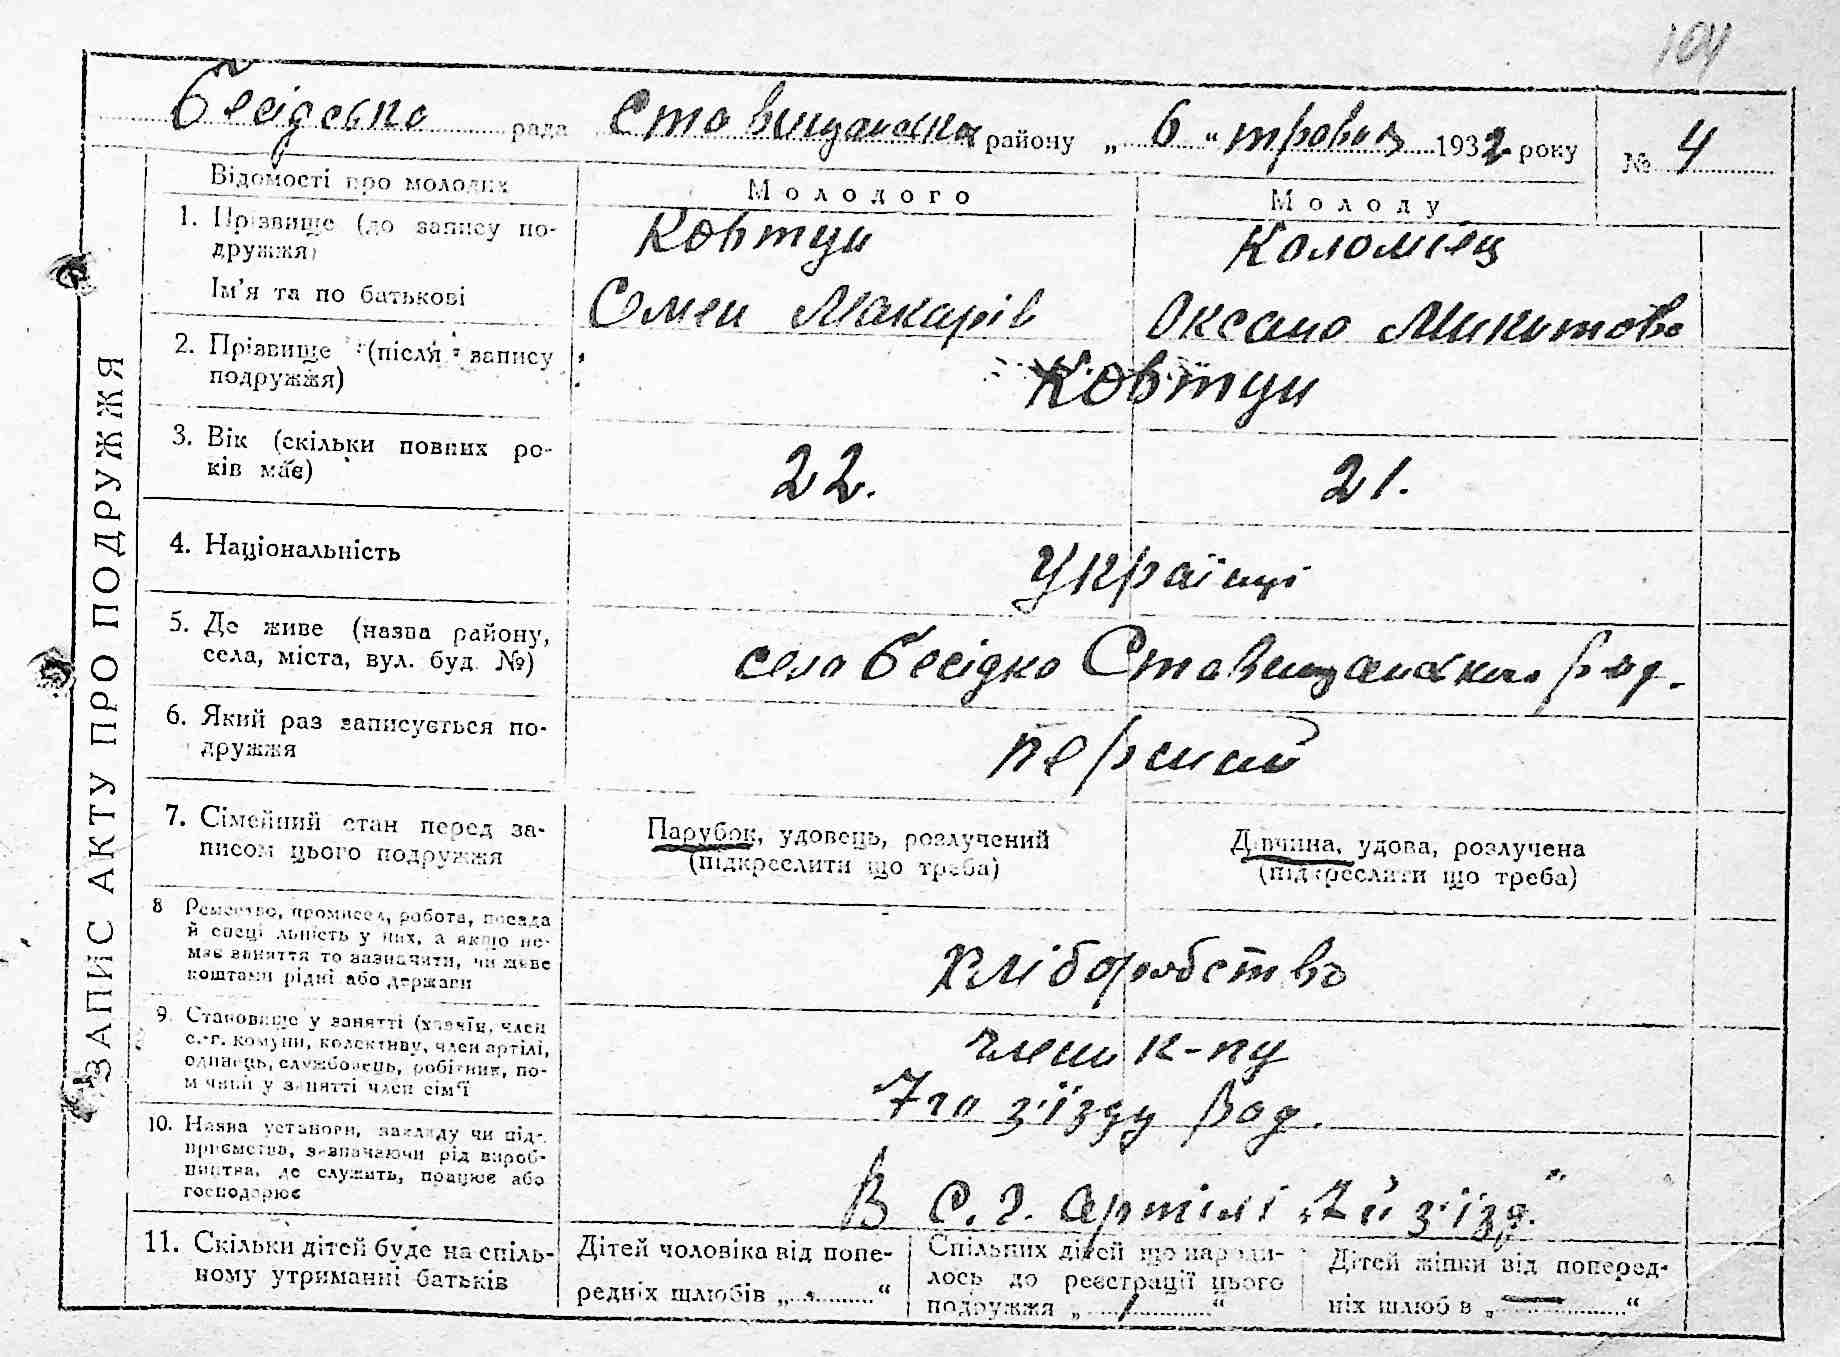 101
Бесідська рада Ставищанська району „ 6 “ травня 1932 року № 4
ЗАПИС АКТУ ПРО ПОДРУЖЖЯ
Відомості про молодих
Молодого
Молоду
1. Прізвище (до запису по-
дружжя)
Ковтун
Коломієц
Ім’я та по батькові
Семен Макарів
Оксана Микитова
2. Прізвище (після запису
подружжя)
Ковтун
3. Вік (скільки повних ро-
ків має)
22.
21.
4. Національність
Українці
5. Де живе (назва району,
села, міста, вул. буд. №)
село Бесідка Ставищанського рад.
6. Який раз записується по-
дружжя
перший
7. Сімейний стан перед за-
писом цього подружжя
Парубок, удовець, розлучений
(підкреслити що треба)
Дівчина, удова, розлучена
(підкреслити що треба)
8 Ремество, промисел, робота, посада
й спеціяльність у них, а якщо не-
має заняття то зазначити, чи живе
коштами рідні або держави
хліборобство
9. Становище у занятті (хазяїн, член
с.-г. комуни, колективу, член артілі,
одинець, службовець, робітник, по-
мічний у занятті член сім’ї
член к-пу
7го з'їзду Рад.
10. Назва установи, закладу чи під-
приємства, зазначаючи рід вироб-
ництва, де служить, працює або
господарює
В с. г. артілі „7й з'їзд.“
11. Скільки дітей буде на спіль-
ному утриманні батьків
Дітей чоловіка від попе-
редніх шлюбів „ “
Спільних дітей що народи-
лось до реєстрації цього
подружжя „ / “
Дітей жінки від поперед-
ніх шлюбів „ — “